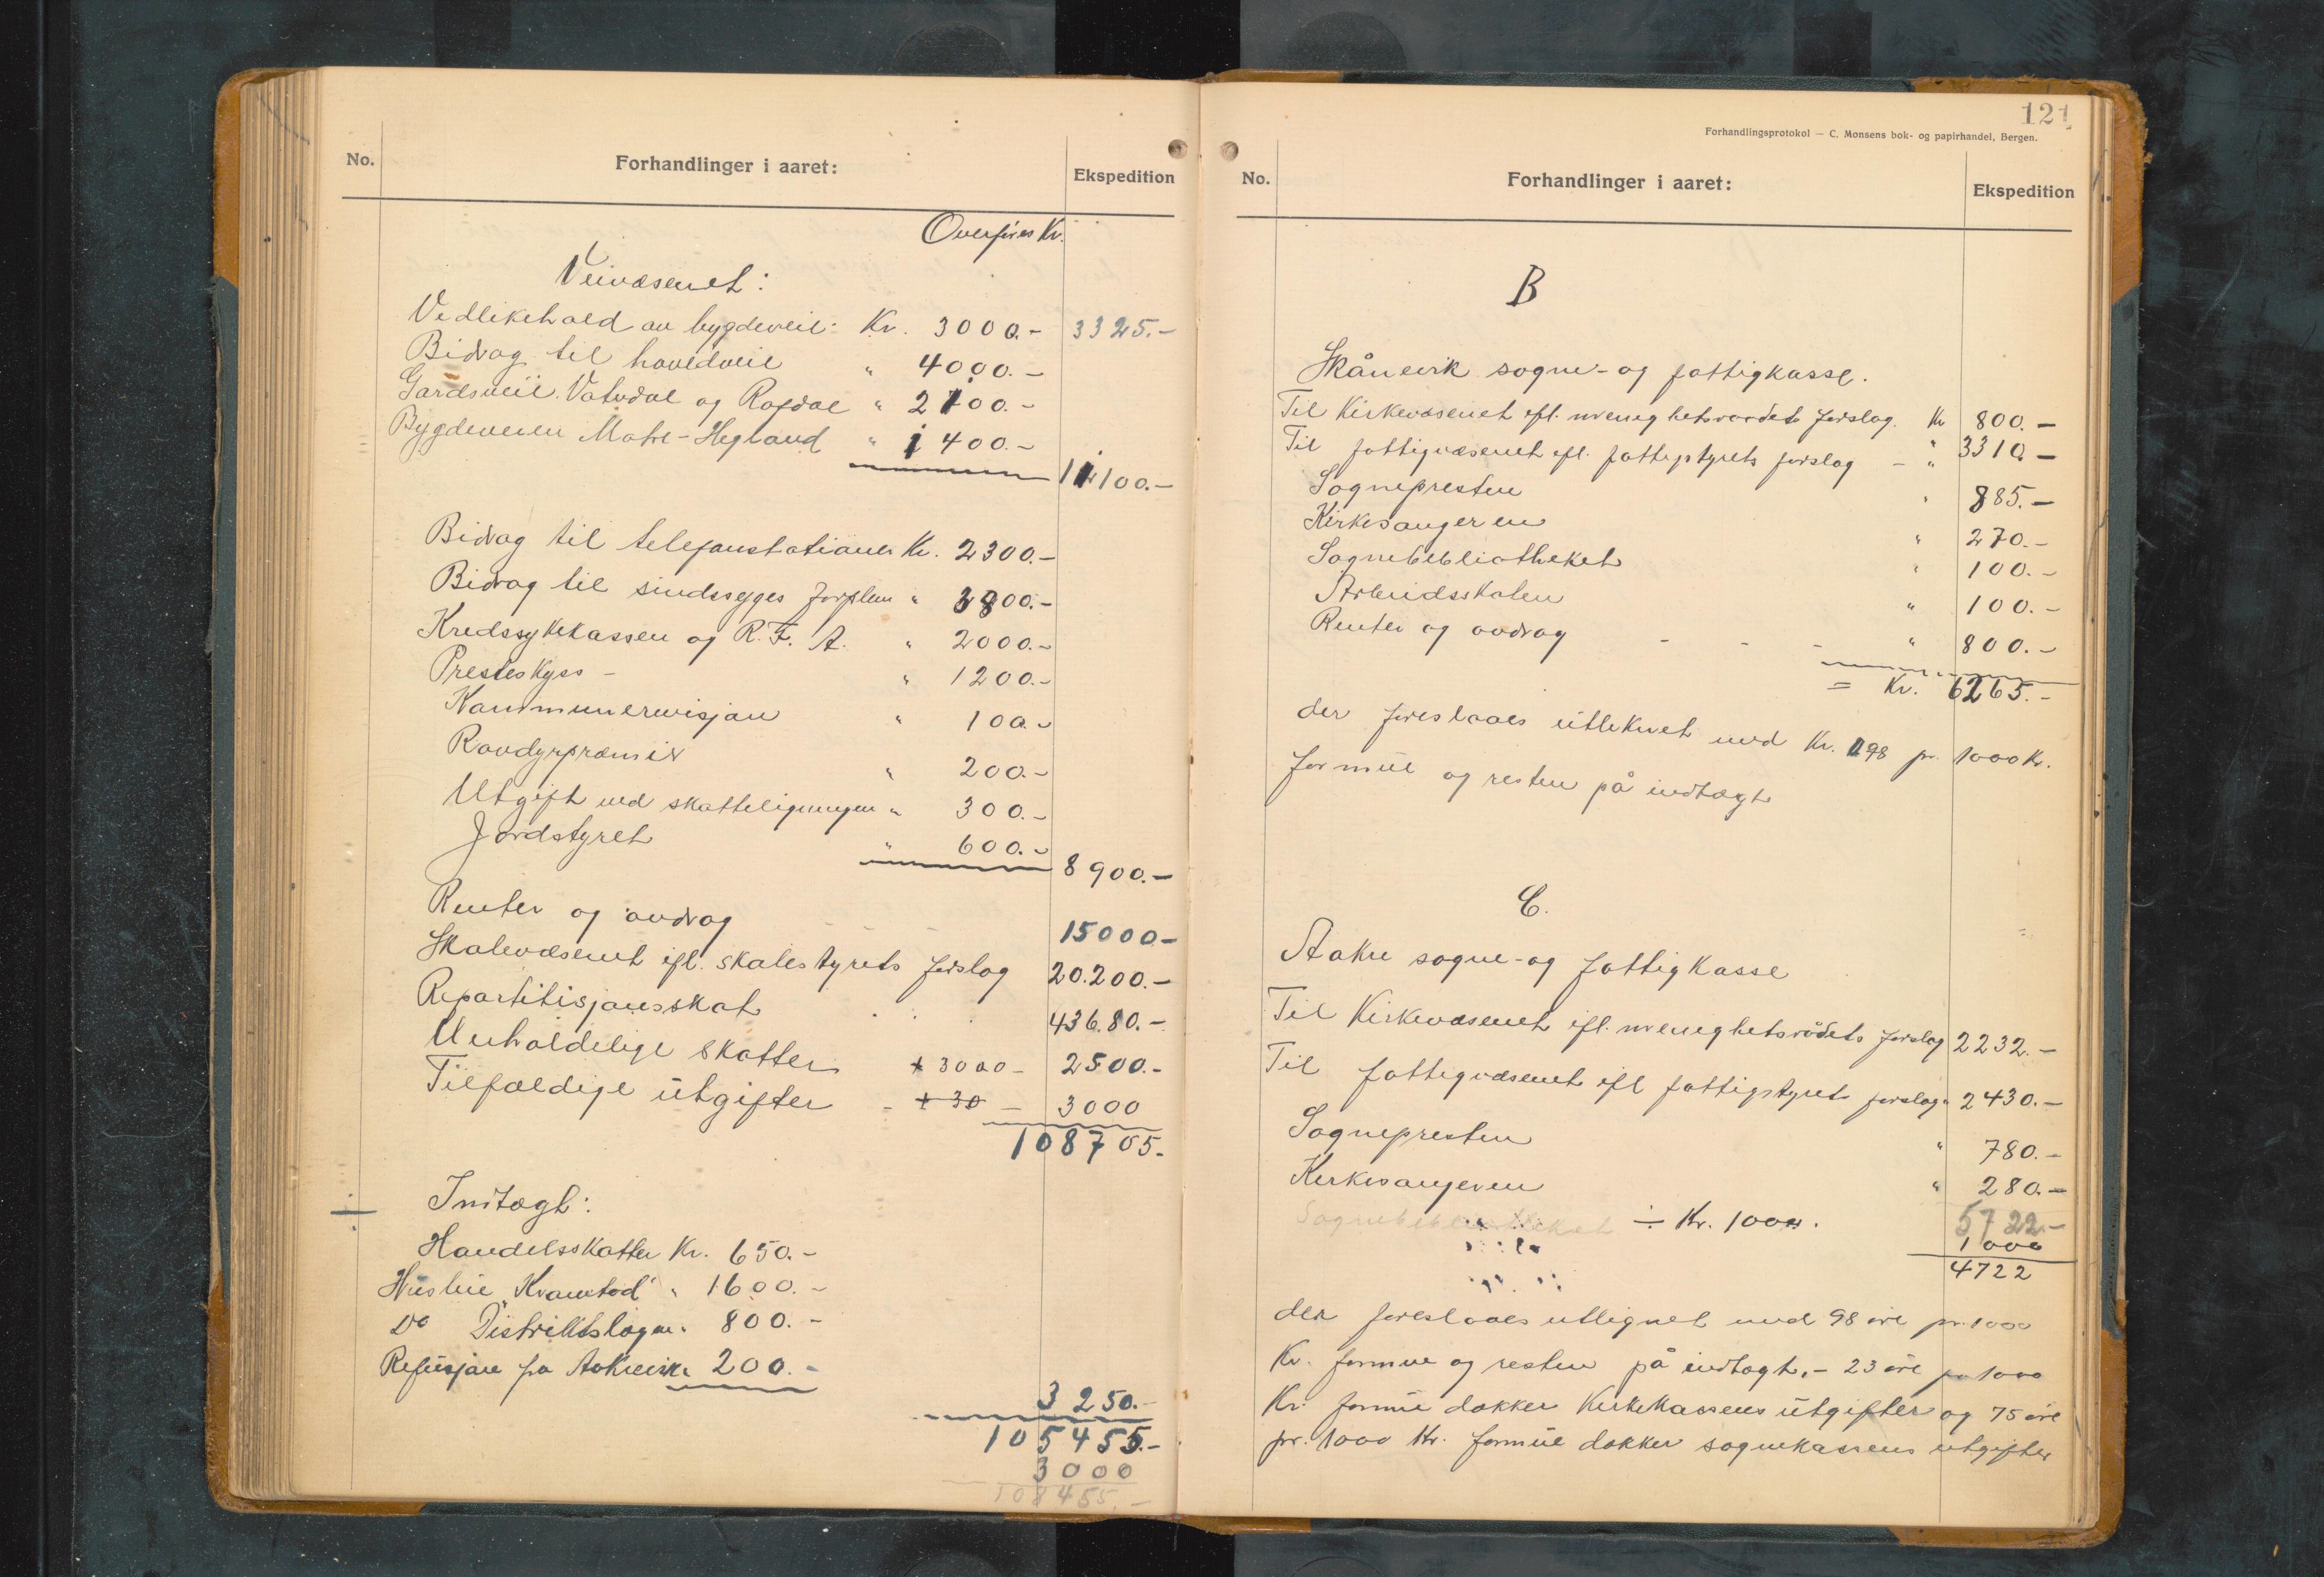 No.
Forhandlinger i aaret:
Ekspedition
Overføres Kr.
Veivæsenet:
Vedlikehold av bygdeveie: Kr. 3000.- 3325.-
Bidrag til hovedveie " 4000.-
Gardsveie. Vatndal og Rafdal " 2700.-
Bygdeveien Matre-Hegland " 1400.-
11100.-
Bidrag til telefonstationer Kr. 2300.-
Bidrag til sindssyges forplein "
Kredssykekassen og R.F.A. " 2000.-
Presteskyss - " 1200.-
Kommunerevisjon " 100.-
Rovdyrpræmier " 200.-
Utgift ved skatteligningen " 300.-
Jordstyret " 600.-
8900.-
Renter og avdrag 15000-
Skolevæsenet efl. skolestyrets forslag 20.200.-
Repartitisjonsskat 436.80.-
Uerholdelige skatter + 3000- 2500.-
Tilfældige utgifter - + 30 - 3000
108705.-
÷ Indtægt:
Handelsskatter Kr. 650.-
Husleie "Kvamtod" " 1600.-
Do Distriktslægen. 800.-
Refusjon fra Aakrevik " 200.-
3250.-
105455.-
3000
108455.-
121
Forhandlingsprotokol — C. Monsens bok- og papirhandel, Bergen.
No.
Forhandlinger i aaret:
Ekspedition
B
Skånevik sogne- og fattigkasse.
Til Kirkevæsenet efl. menighetsraadets forslag. Kr 800.-
Til fattigvæsenet efl. fattigstyrets forslag - " 3310-
Sognepresten " 885.-
Kirkesangeren " 270.-
Sognebibliotheket " 100.-
Arbeidsskolen " 100.-
Renter og avdrag - - - " 800.-
= Kr. 6265.-
der foreslaaes utliknet med Kr. 198 pr. 1000 Kr.
formue og resten på indtægt
C.
Aakre sogne- og fattigkasse
Til Kirkevæsenet efl. menighetsrådets forslag 2232.-
Til fattigvæsenet efl fattigstyrets forslag " 2430.-
Sognepresten " 780.-
Kirkesangeren " 280.-
Sognebibliotheket ÷ Kr. 1000. 5722.-
1000
4722
der foreslaaes utlignet med 98 øre pr. 1000
Kr. formue og resten på indtægt. - 23 øre pr 1000
Kr. formue dækker Kirkekassens utgifter og 75 øre
pr. 1000 Kr. formue dækker sognekassens utgifter